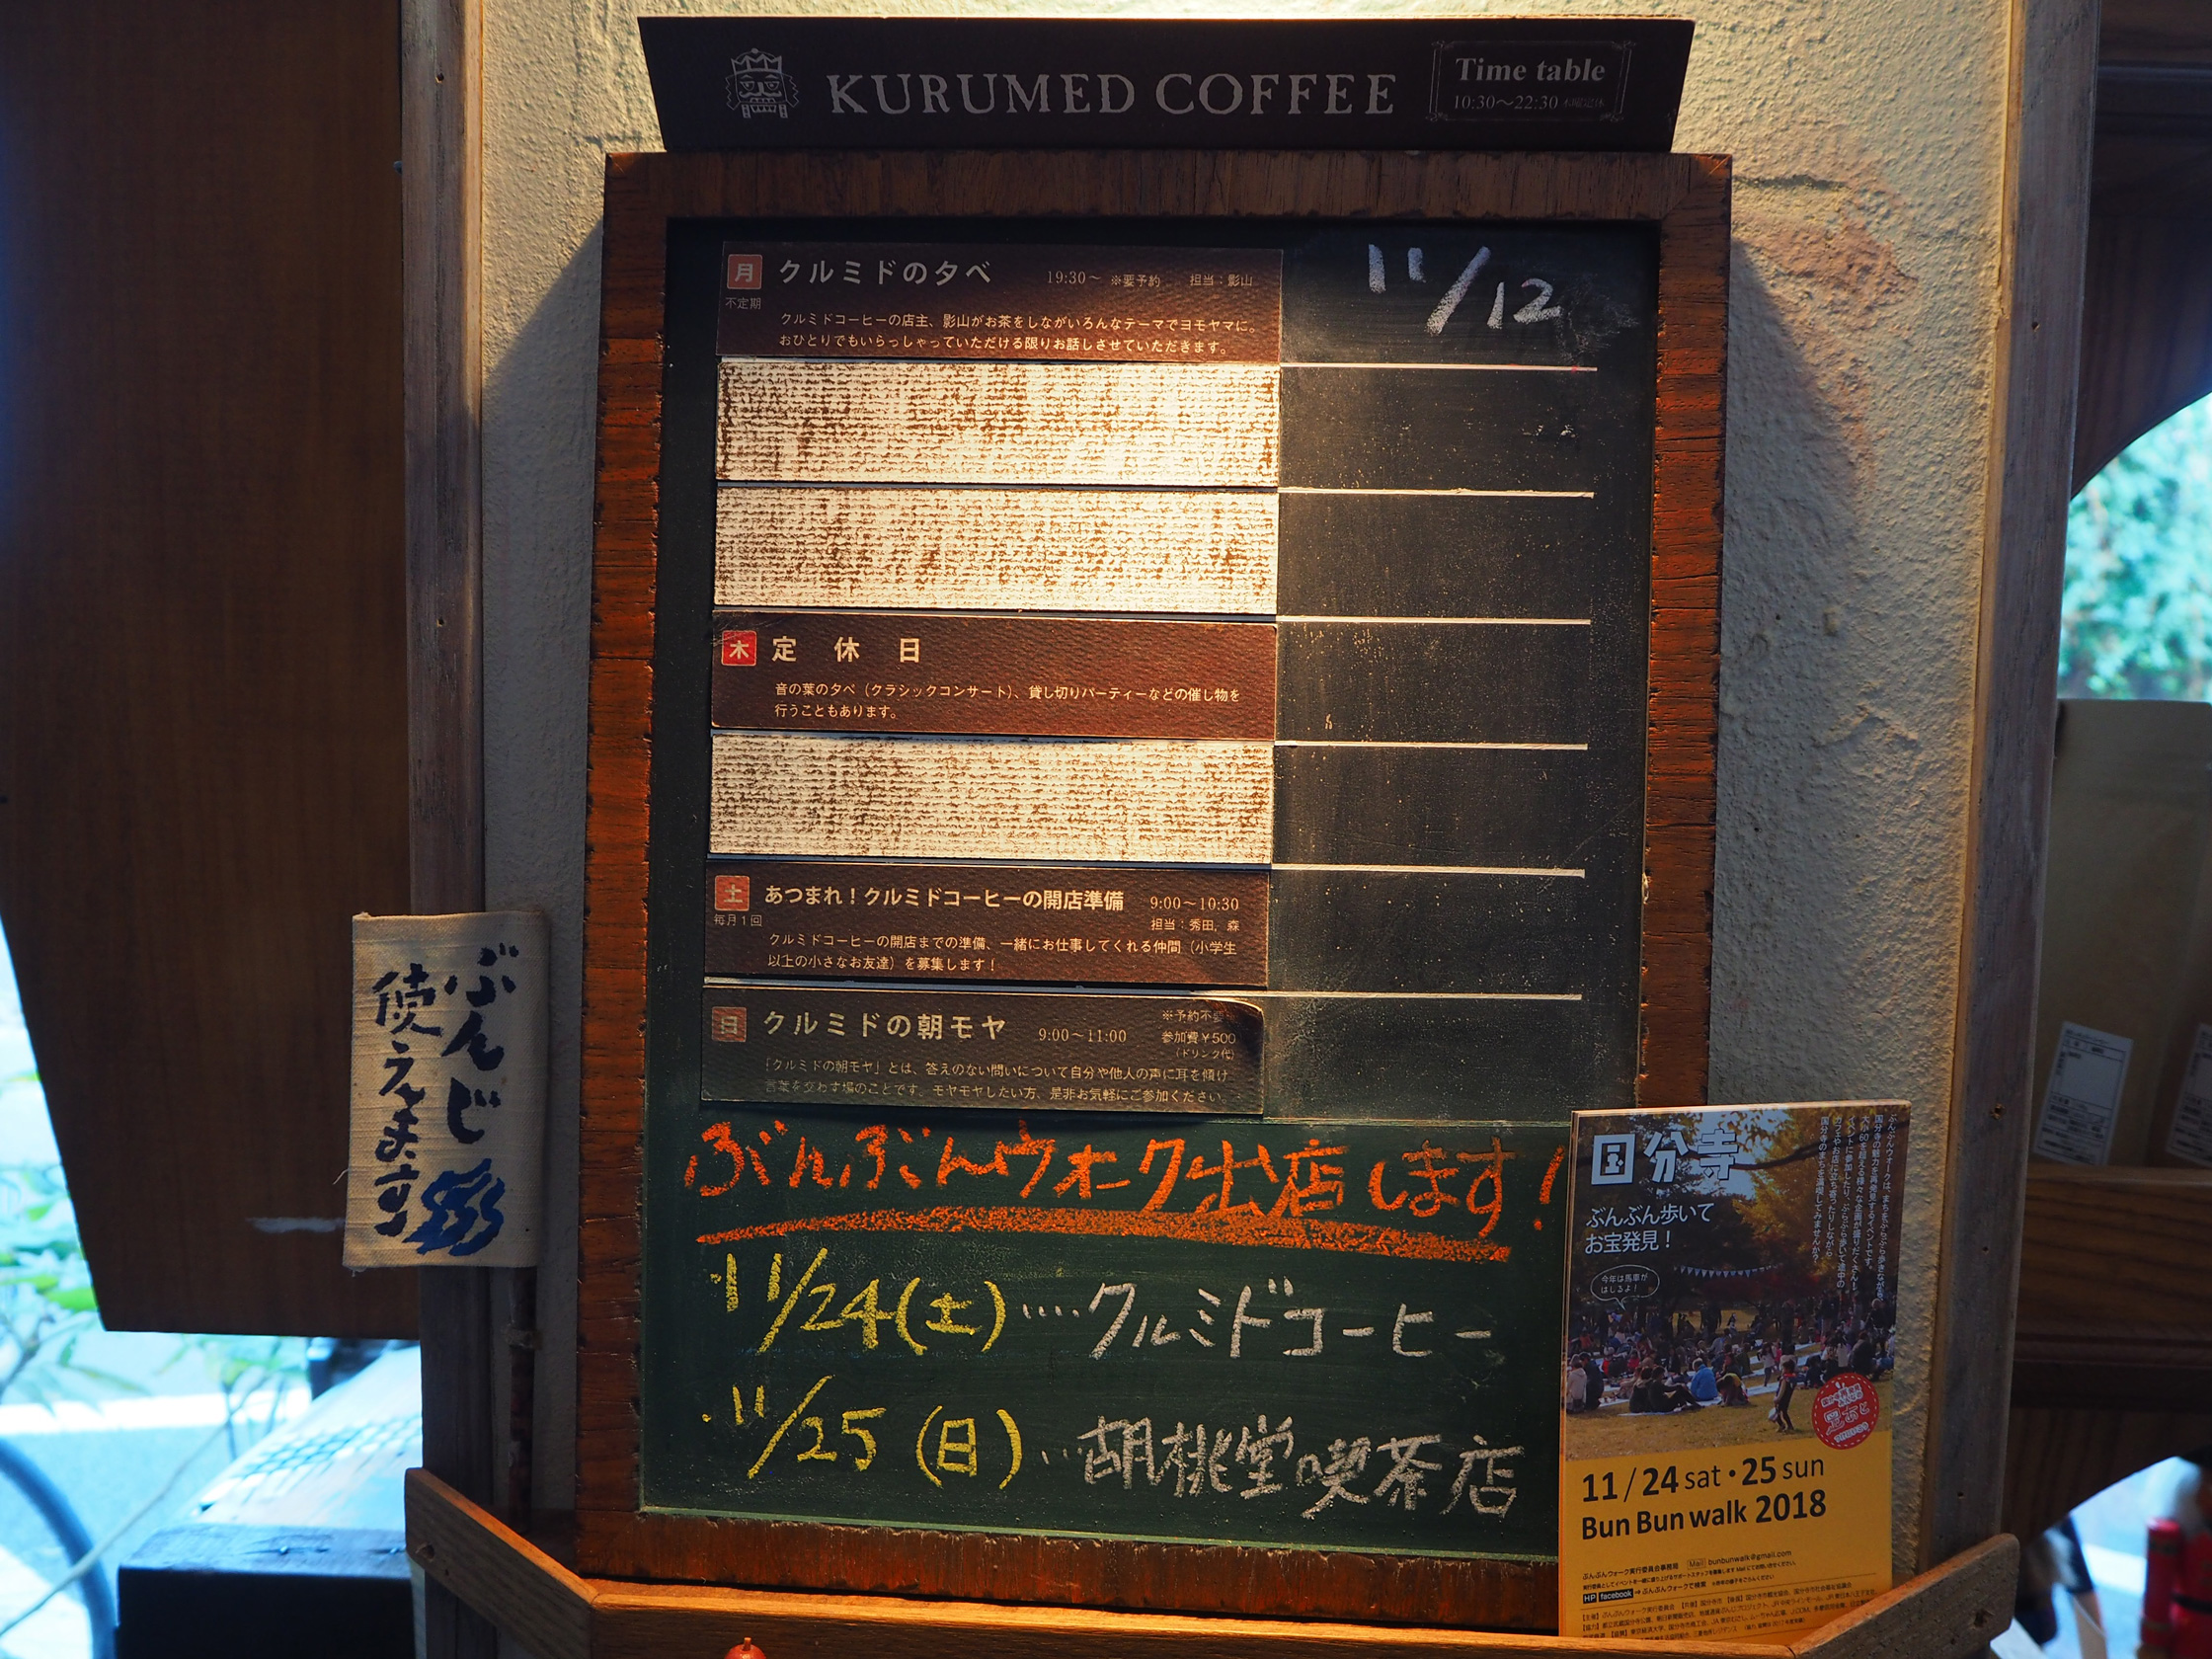 KURUMED COFFEE
Time table
10:30〜22:30 木曜定休
月 クルミドの夕べ 19:30〜 ※要予約 担当：影山
不定期
クルミドコーヒーの店主、影山がお茶をしながいろんなテーマでヨモヤマに。
おひとりでもいらっしゃっていただける限りお話しさせていただきます。
11/12
木 定休日
音の葉の夕べ（クラシックコンサート）、貸し切りパーティーなどの催し物を
行うこともあります。
土 あつまれ！クルミドコーヒーの開店準備 9:00〜10:30
毎月1回
担当：秀田，森
クルミドコーヒーの開店までの準備、一緒にお仕事してくれる仲間（小学生
以上の小さなお友達）を募集します！
日 クルミドの朝モヤ 9:00〜11:00
※予約不要
参加費￥500
（ドリンク代）
「クルミドの朝モヤ」とは、答えのない問いについて自分や他人の声に耳を傾け
言葉を交わす場のことです。モヤモヤしたい方、是非お気軽にご参加ください。
ぶんじ
使えます
ぶんぶんウォーク出店します！
11/24(土)....クルミドコーヒー
11/25(日)...胡桃堂喫茶店
国分寺
ぶんぶん歩いて
お宝発見！
今年は馬車が
はじるよ！
ぶんぶんウォークは、まちをぶらぶら歩きながら
国分寺の魅力を再発見するイベントです。
11/24 sat・25 sun
Bun Bun walk 2018
ぶんぶんウォーク実行委員会事務局 Mail bunbunwalk@gmail.com
HP facebook ⇒ ぶんぶんウォークで検索